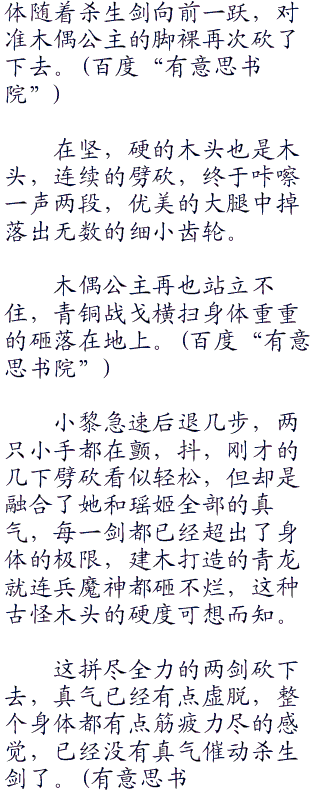 体随着杀生剑向前一跃，对
准木偶公主的脚裸再次砍了
下去。(百度“有意思书
院”)
在坚，硬的木头也是木
头，连续的劈砍，终于咔嚓
一声两段，优美的大腿中掉
落出无数的细小齿轮。
木偶公主再也站立不
住，青铜战戈横扫身体重重
的砸落在地上。(百度“有意
思书院”)
小黎急速后退几步，两
只小手都在颤，抖，刚才的
几下劈砍看似轻松，但却是
融合了她和瑶姬全部的真
气，每一剑都已经超出了身
体的极限，建木打造的青龙
就连兵魔神都砸不烂，这种
古怪木头的硬度可想而知。
这拼尽全力的两剑砍下
去，真气已经有点虚脱，整
个身体都有点筋疲力尽的感
觉，已经没有真气催动杀生
剑了。(有意思书